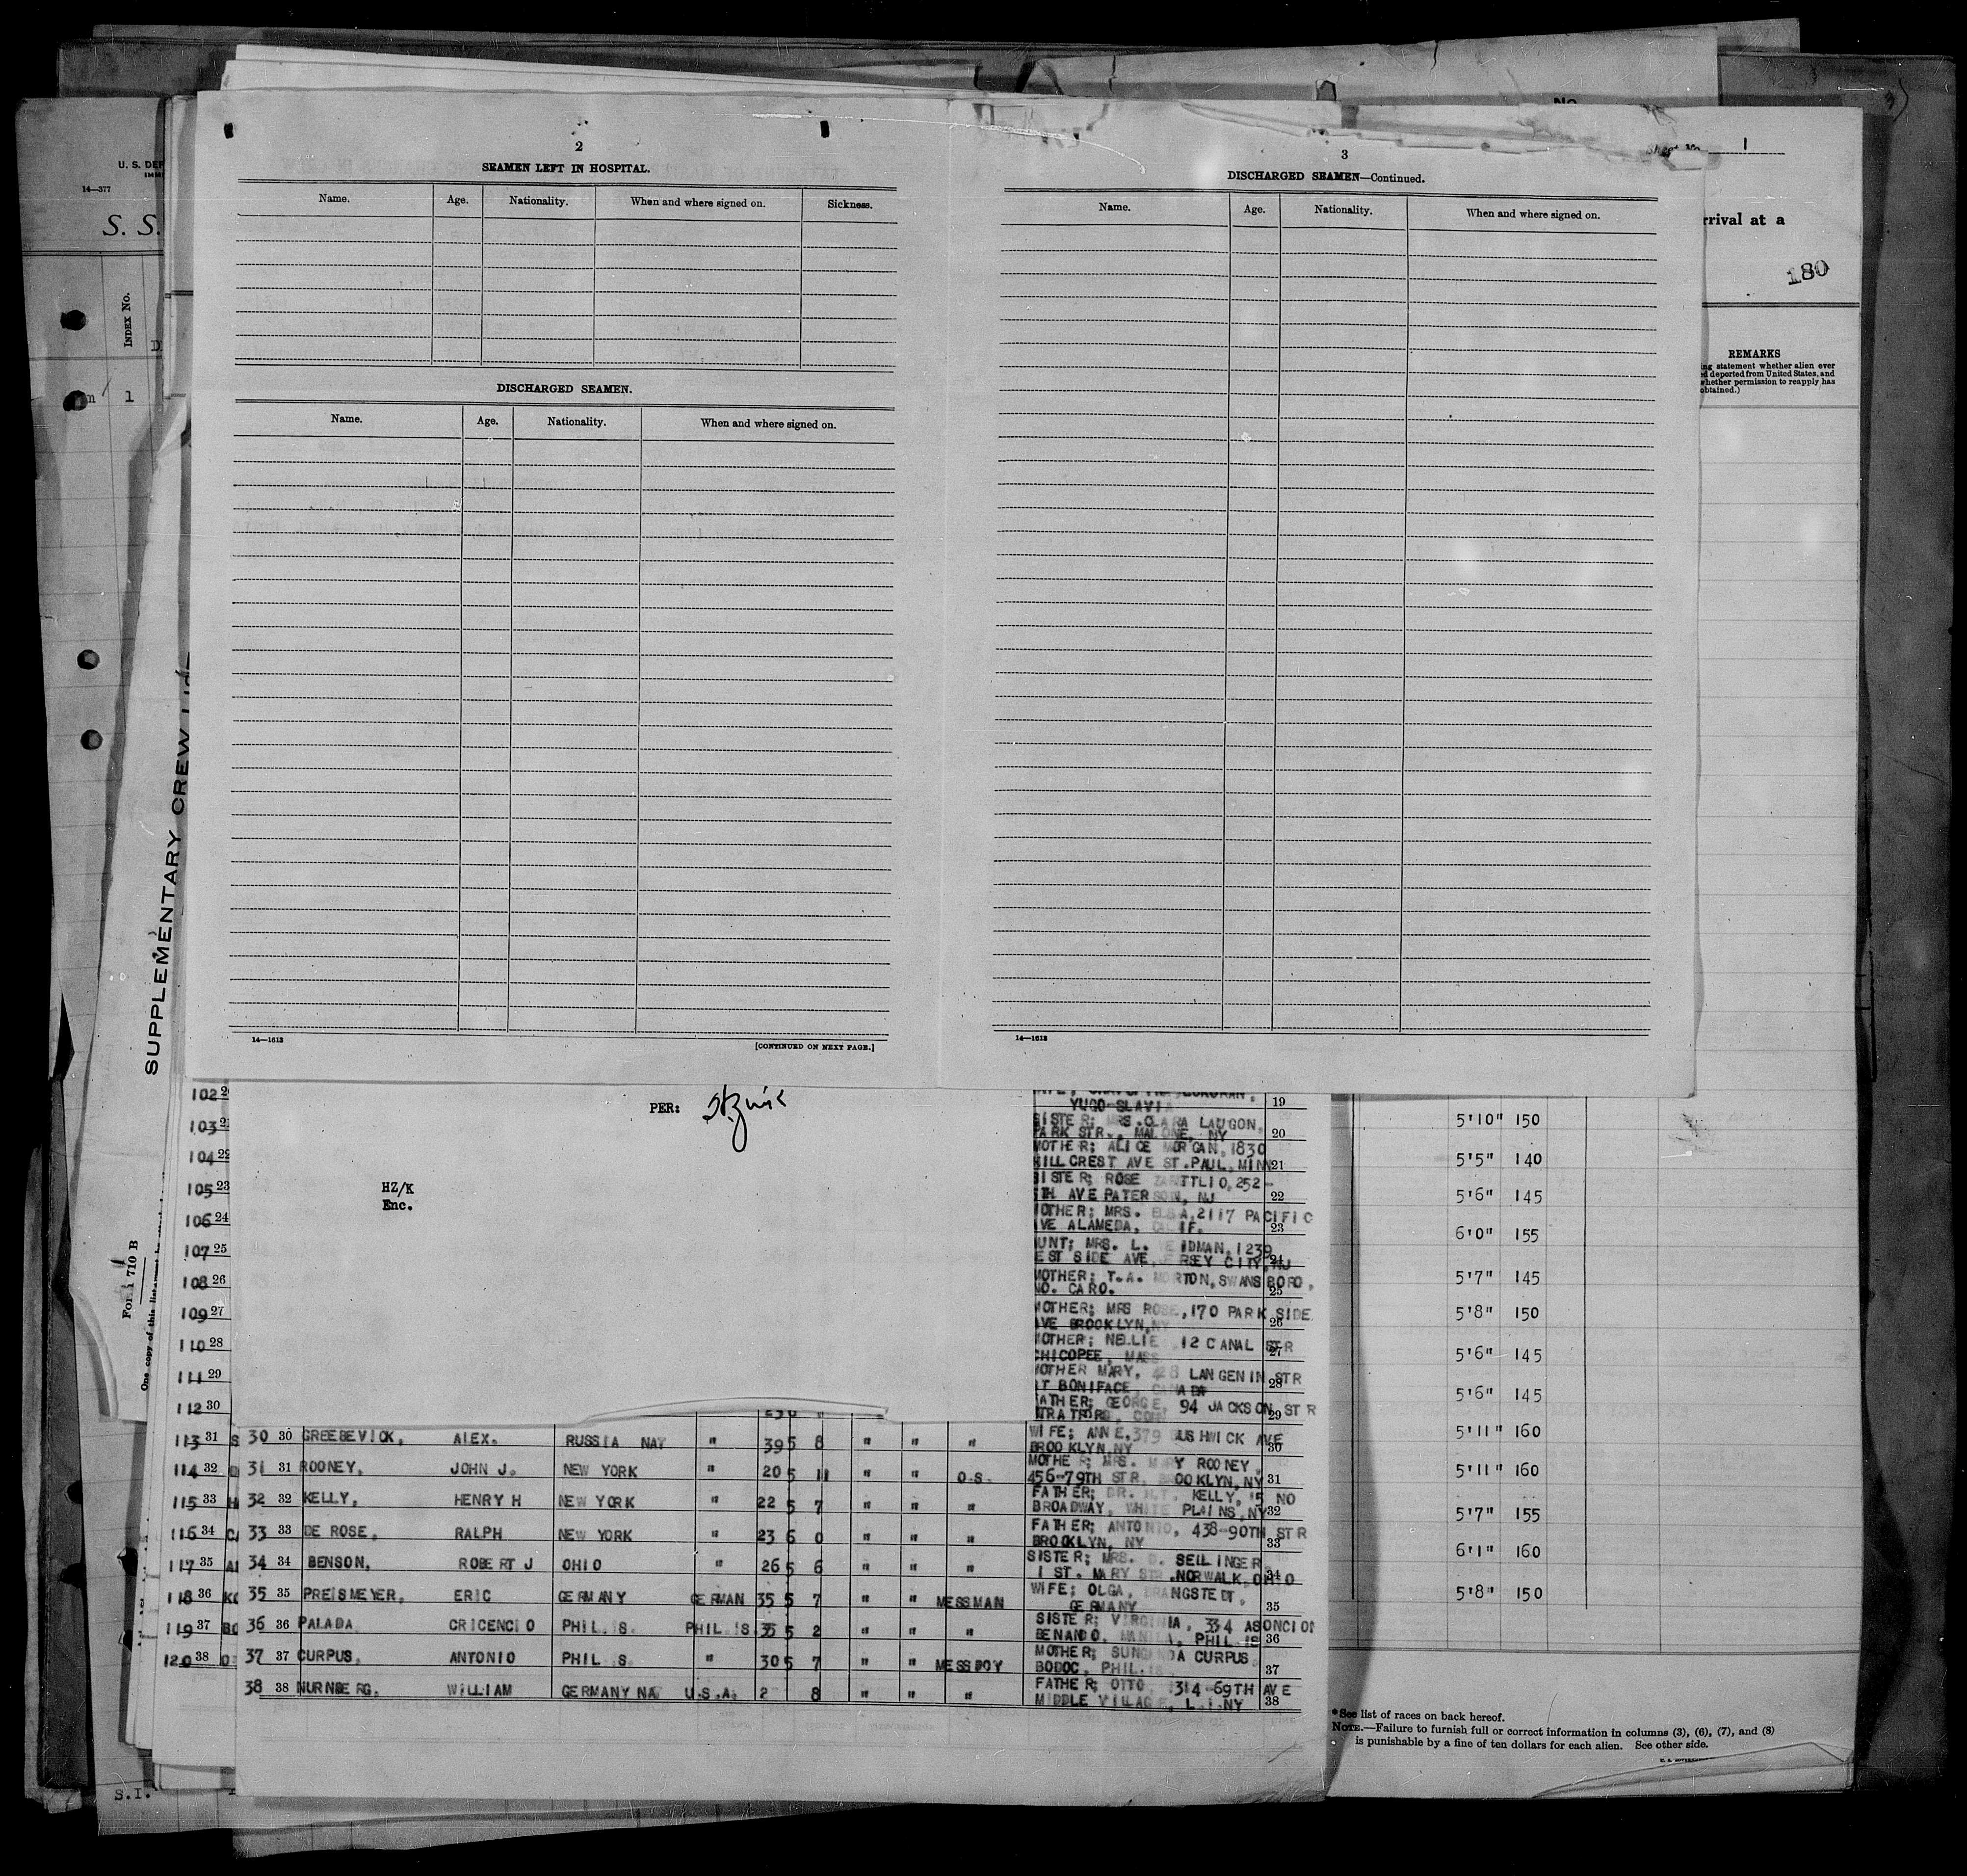 U. S. DEP
IMMI
14—377
S. S.
INDEX No.
1
SUPPLEMENTARY CREW
Form 710 B
One copy of this list must be
S.I.
2
SEAMEN LEFT IN HOSPITAL.
Name. Age. Nationality. When and where signed on. Sickness.
DISCHARGED SEAMEN.
Name. Age. Nationality. When and where signed on.
14—1613
[CONTINUED ON NEXT PAGE.]
3
DISCHARGED SEAMEN—Continued.
Name. Age. Nationality. When and where signed on.
14—1613
No
Sheet No. 1
rrival at a
180
REMARKS
ing statement whether alien ever
d deported from United States, and
whether permission to reapply has
obtained.)
PER:
HZ/K
Enc.
102
103
104
105 23
106 24
107 25
108 26
109 27
110 28
111 29
112 30
113 31
114 32
115 33
116 34
117 35
118 36
119 37
120 38
YUGO-SLAVIA 19
SISTER; MRS. CLARA LAUGON,
PARK STR., MALONE, NY 20
MOTHER; ALICE MORGAN, 1830
HILLCREST AVE ST. PAUL, MINN 21
SISTER; ROSE 252-
5TH AVE PATERSON, NJ 22
MOTHER; MRS. ELSA, 2117 PACIFIC
AVE ALAMEDA, CALIF. 23
AUNT; MRS. L. 1239
WEST SIDE AVE, JERSEY CITY, NJ 24
MOTHER; T.A. MORTON, SWANSBORO,
NO. CARO. 25
MOTHER; MRS ROSE, 170 PARK SIDE
AVE BROOKLYN, NY 26
MOTHER; NELLIE, 12 CANAL STR
CHICOPEE, MASS 27
MOTHER MARY, LANGENIN STR
ST BONIFACE, CANADA 28
FATHER; GEORGE, 94 JACKSON STR
STRATFORD, CONN 29
30 30 GREEBEVICK, ALEX. RUSSIA NAT " 39 5 8 " " " WIFE; ANNE, 379 BUSHWICK AVE
BROOKLYN, NY 30
31 31 ROONEY, JOHN J. NEW YORK " 20 5 11 " " O.S. MOTHER; MRS. MARY ROONEY,
456-79TH STR. BROOKLYN, NY 31
32 32 KELLY, HENRY H NEW YORK " 22 5 7 " " " FATHER; DR. H.T. KELLY, 15 NO
BROADWAY, WHITE PLAINS, NY 32
33 33 DE ROSE, RALPH NEW YORK " 23 6 0 " " " FATHER; ANTONIO, 438-90TH STR
BROOKLYN, NY 33
34 34 BENSON, ROBERT J OHIO " 26 5 6 " " " SISTER; MRS. D. SELLINGER
1 ST. MARY STR. NORWALK, OHIO 34
35 35 PREISMEYER, ERIC GERMANY GERMAN 35 5 7 " " MESSMAN WIFE; OLGA, BRANGSTEDT,
GERMANY 35
36 36 PALADA CRICENCIO PHIL.IS. PHIL.IS. 35 5 2 " " " SISTER; VIRGINIA, 334 ASONCION
BENANDO, MANILA, PHIL.IS 36
37 37 CURPUS, ANTONIO PHIL.IS. " 30 5 7 " " MESSBOY MOTHER; CURPUS
BODOC, PHIL.IS. 37
38 38 NURNBERG, WILLIAM GERMANY NA U.S.A. 2 8 " " " FATHER; OTTO, 314-69TH AVE
MIDDLE VILLAGE, L.I. NY 38
5'10" 150
5'5" 140
5'6" 145
6'0" 155
5'7" 145
5'8" 150
5'6" 145
5'6" 145
5'11" 160
5'11" 160
5'7" 155
6'1" 160
5'8" 150
*See list of races on back hereof.
NOTE.—Failure to furnish full or correct information in columns (3), (6), (7), and (8)
is punishable by a fine of ten dollars for each alien. See other side.